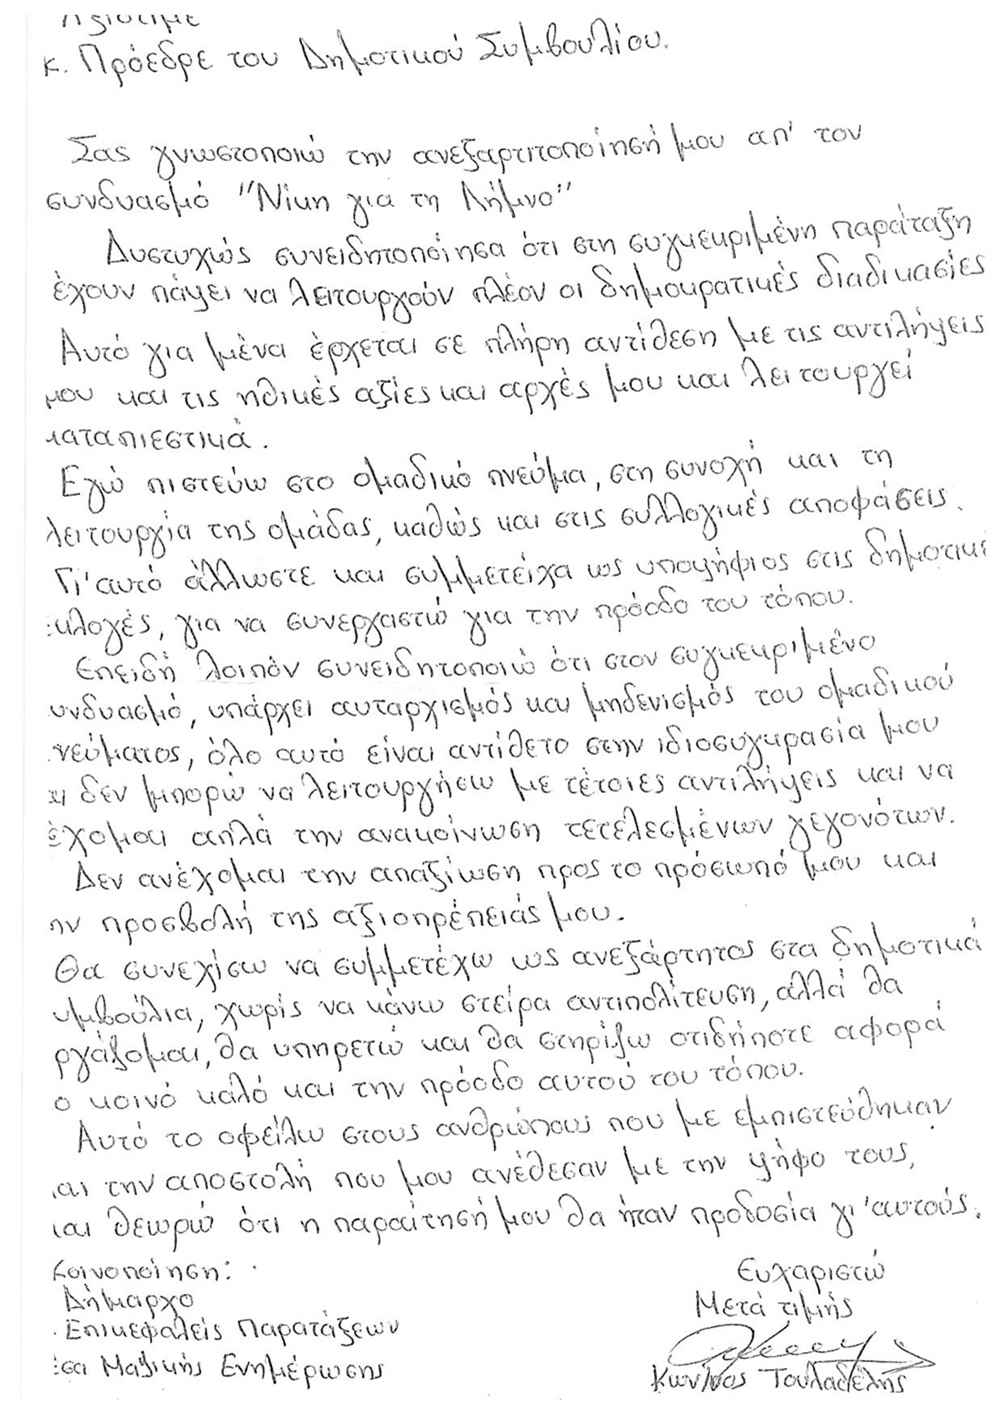 Αξιότιμε
κ. Πρόεδρε του Δημοτικού Συμβουλίου.
Σας γνωστοποιώ την ανεξαρτιτοποίησή μου απ' τον
συνδυασμό "Νίκη για τη Λήμνο"
Δυστυχώς συνειδητοποίησα ότι στη συγκεκριμένη παράταξη
έχουν πάψει να λειτουργούν πλέον οι δημοκρατικές διαδικασίες
Αυτό για μένα έρχεται σε πλήρη αντίθεση με τις αντιλήψεις
μου και τις ηθικές αξίες και αρχές μου και λειτουργεί
καταπιεστικά.
Εγώ πιστεύω στο ομαδικό πνεύμα, στη συνοχή και τη
λειτουργία της ομάδας, καθώς και στις συλλογικές αποφάσεις.
Γι' αυτό άλλωστε και συμμετείχα ως υποψήφιος στις δημοτικέ
κλογές, για να συνεργαστώ για την πρόοδο του τόπου.
Επειδή λοιπόν συνειδητοποιώ ότι στον συγκεκριμένο
υνδυασμό, υπάρχει αυταρχισμός και μηδενισμός του ομαδικού
νεύματος, όλο αυτό είναι αντίθετο στην ιδιοσυγκρασία μου
ι δεν μπορώ να λειτουργήσω με τέτοιες αντιλήψεις και να
έχομαι απλά την ανακοίνωση τετελεσμένων γεγονότων.
Δεν ανέχομαι την απαξίωση προς το πρόσωπό μου και
ην προσβολή της αξιοπρέπειάς μου.
Θα συνεχίσω να συμμετέχω ως ανεξάρτητος στα δημοτικά
υμβούλια, χωρίς να κάνω στείρα αντιπολίτευση, αλλά θα
ργάζομαι, θα υπηρετώ και θα στηρίζω οτιδήποτε αφορά
ο κοινό καλό και την πρόοδο αυτού του τόπου.
Αυτό το οφείλω στους ανθρώπους που με εμπιστεύθηκαν
αι την αποστολή που μου ανέθεσαν με την ψήφο τους,
και θεωρώ ότι η παραίτησή μου θα ήταν προδοσία γι' αυτούς.
Κοινοποίηση:
Δήμαρχο
Επικεφαλείς Παρατάξεων
έσα Μαζικής Ενημέρωσης
Ευχαριστώ
Μετά τιμής
Κων/νος Τουλαδέλης